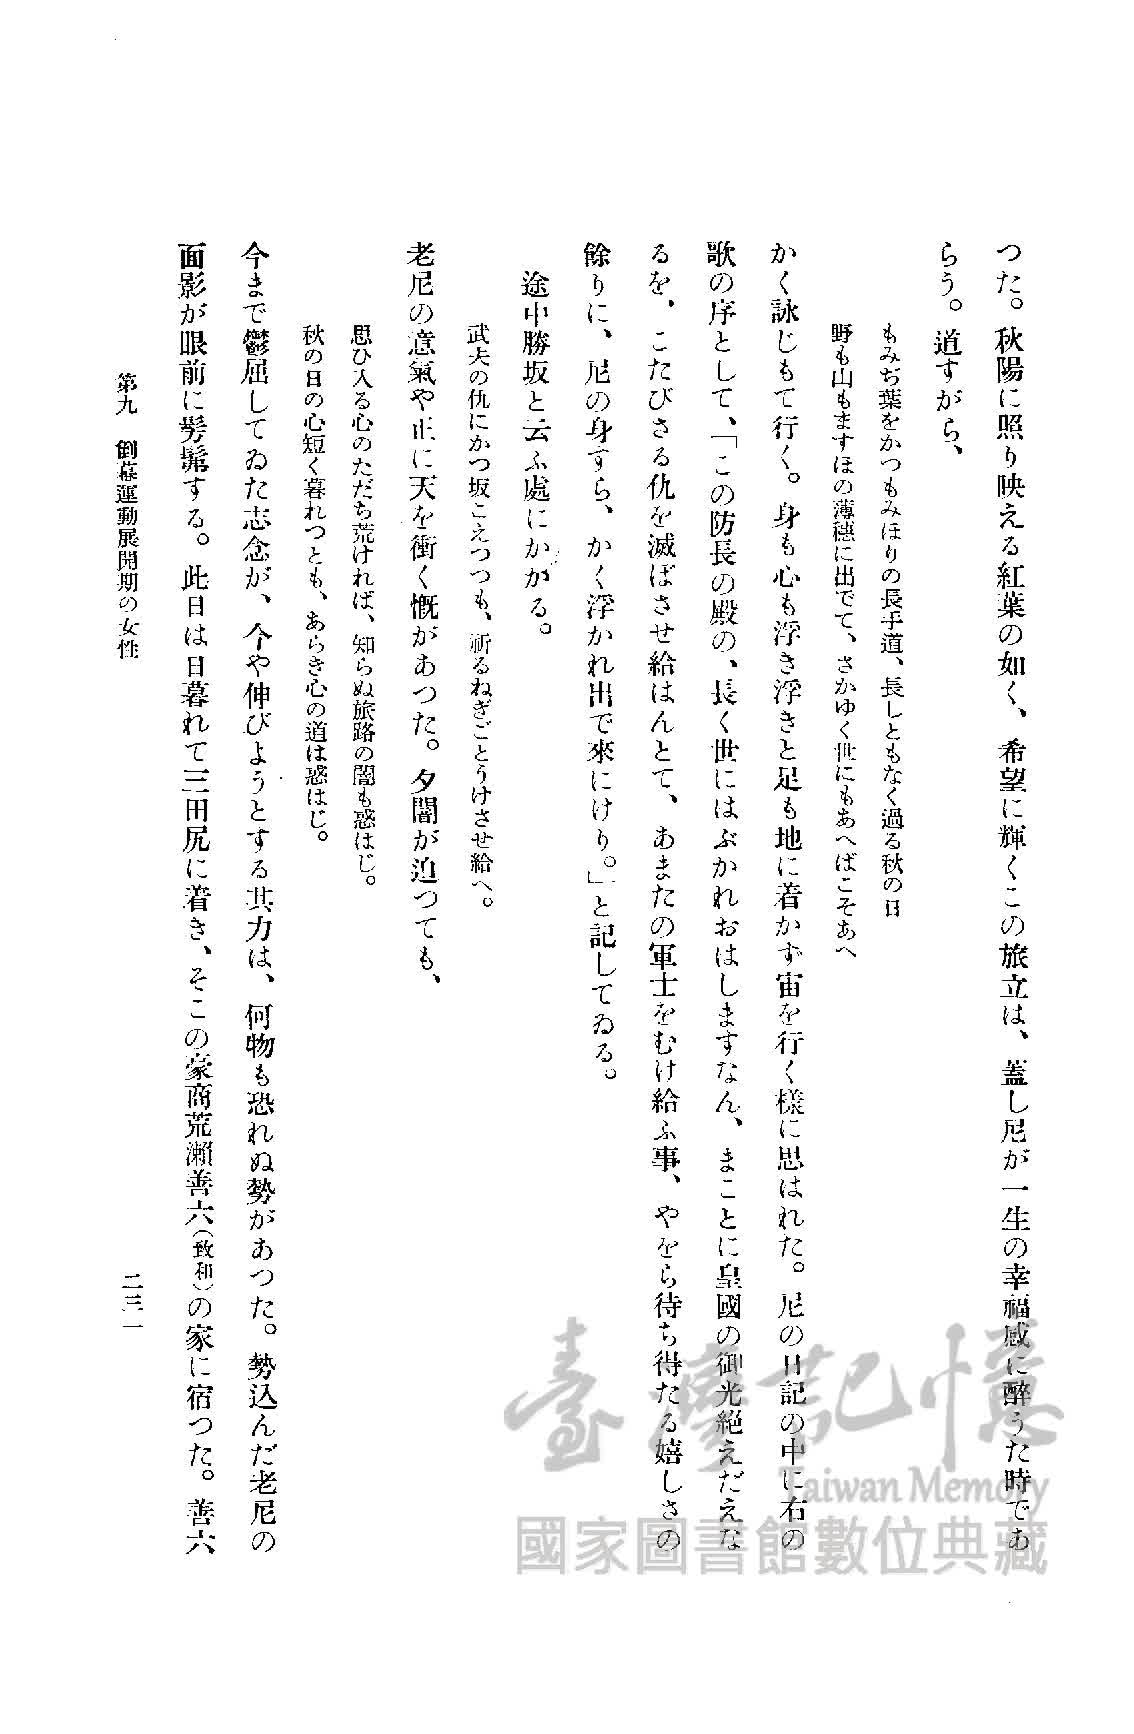 つた。秋陽に照り映える紅葉の如く、希望に輝くこの旅立は、蓋し尼が一生の幸福感に醉うた時であ
らう。道すがら、
もみぢ葉をかつもみほりの長手道、長しともなく過る秋の日
野も山もますほの薄穗に出でて、さかゆく世にもあへばこそあへ
かく詠じもて行く。身も心も浮き浮きと足も地に着かず宙を行く樣に思はれた。尼の日記の中に右の
歌の序として、「この防長の殿の、長く世にはぶかれおはしますなん、まことに皇國の御光絶えだえな
るを、こたびさる仇を滅ぼさせ給はんとて、あまたの軍士をむけ給ふ事、やをら待ち得たる嬉しさの
餘りに、尼の身すら、かく浮かれ出で來にけり。」と記してゐる。
途中勝坂と云ふ處にかゝる。
武夫の仇にかつ坂こえつつも、祈るねぎごとうけさせ給へ。
老尼の意氣や正に天を衝く慨があつた。夕闇が迫つても、
思ひ入る心のただち荒ければ、知らぬ旅路の闇も惑はじ。
秋の日の心短く暮れつとも、あらき心の道は惑はじ。
今まで鬱屈してゐた志念が、今や伸びようとする其力は、何物も恐れぬ勢があつた。勢込んだ老尼の
面影が眼前に髣髴する。此日は日暮れて三田尻に着き、そこの豪商荒瀬善六(致和)の家に宿つた。善六
第九 倒幕運動展開期の女性
二三一
臺灣記憶
Taiwan Memory
國家圖書館數位典藏